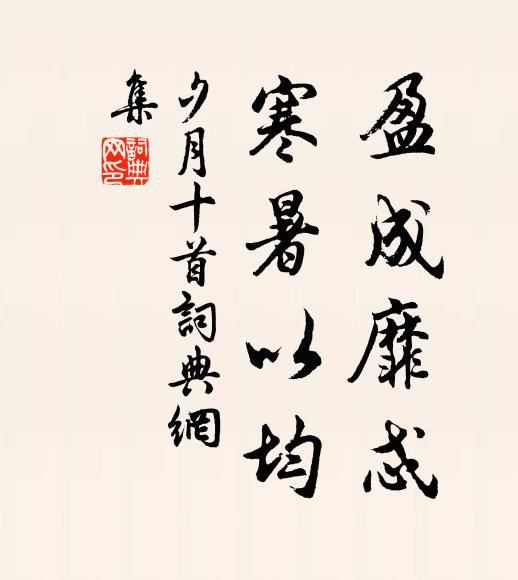 盈成靡忒
寒暑以均
夕月十首詞典網
集
詞典
网印